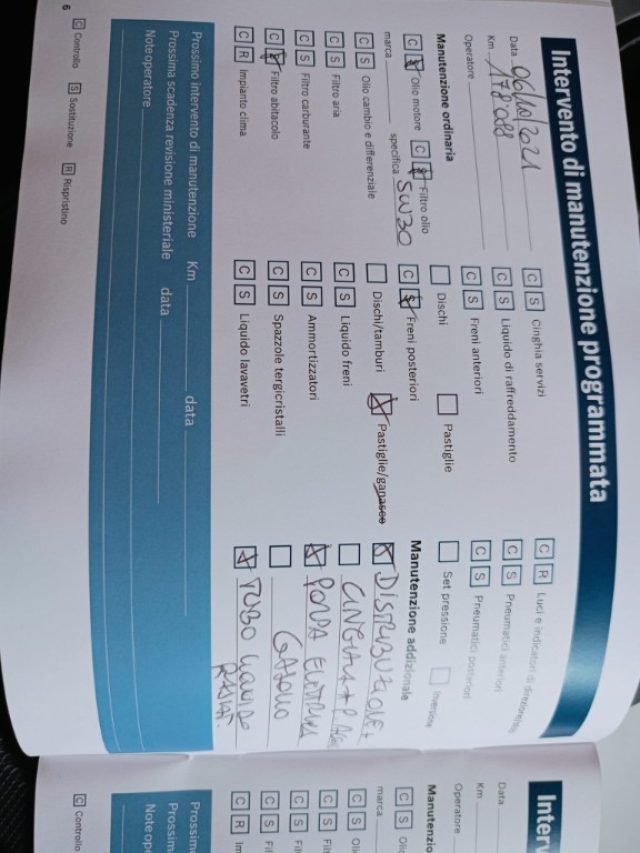 Intervento di manutenzione programmata
Data 06/10/2021
Km 178088
Operatore
Manutenzione ordinaria
C S Olio motore C S Filtro olio
marca specifica 5W30
C S Olio cambio e differenziale
C S Filtro aria
C S Filtro carburante
C S Filtro abitacolo
C R Impianto clima
C S Cinghia servizi
C S Liquido di raffreddamento
C S Freni anteriori
Dischi Pastiglie
C S Freni posteriori
Dischi/tamburi Pastiglie/ganasce
C S Liquido freni
C S Ammortizzatori
C S Spazzole tergicristalli
C S Liquido lavavetri
C R Luci e indicatori di direzione
C S Pneumatici anteriori
C S Pneumatici posteriori
Set pressione Inversione
Manutenzione addizionale
DISTRIBUZIONE +
CINGHIA + P.
POMPA
GASOLIO
TUBO LIQUIDO
Prossimo intervento di manutenzione Km data
Prossima scadenza revisione ministeriale data
Note operatore
6 C Controllo S Sostituzione R Rispristino
Interv
Data
Km
Operatore
Manutenzio
C S Olio
marca
C S Oli
C S Filt
C S Fil
C S Fil
C R Im
Prossimo
Prossim
Note ope
C Controllo